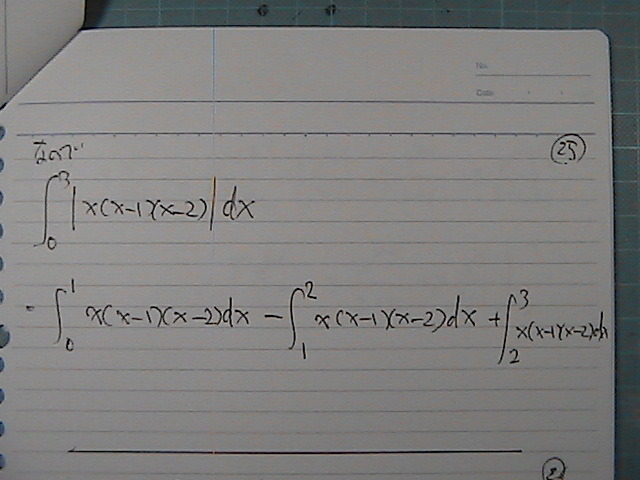 No.
Date
25
∫₀³ |x(x-1)(x-2)| dx
= ∫₀¹ x(x-1)(x-2)dx - ∫₁² x(x-1)(x-2)dx + ∫₂³ x(x-1)(x-2)dx